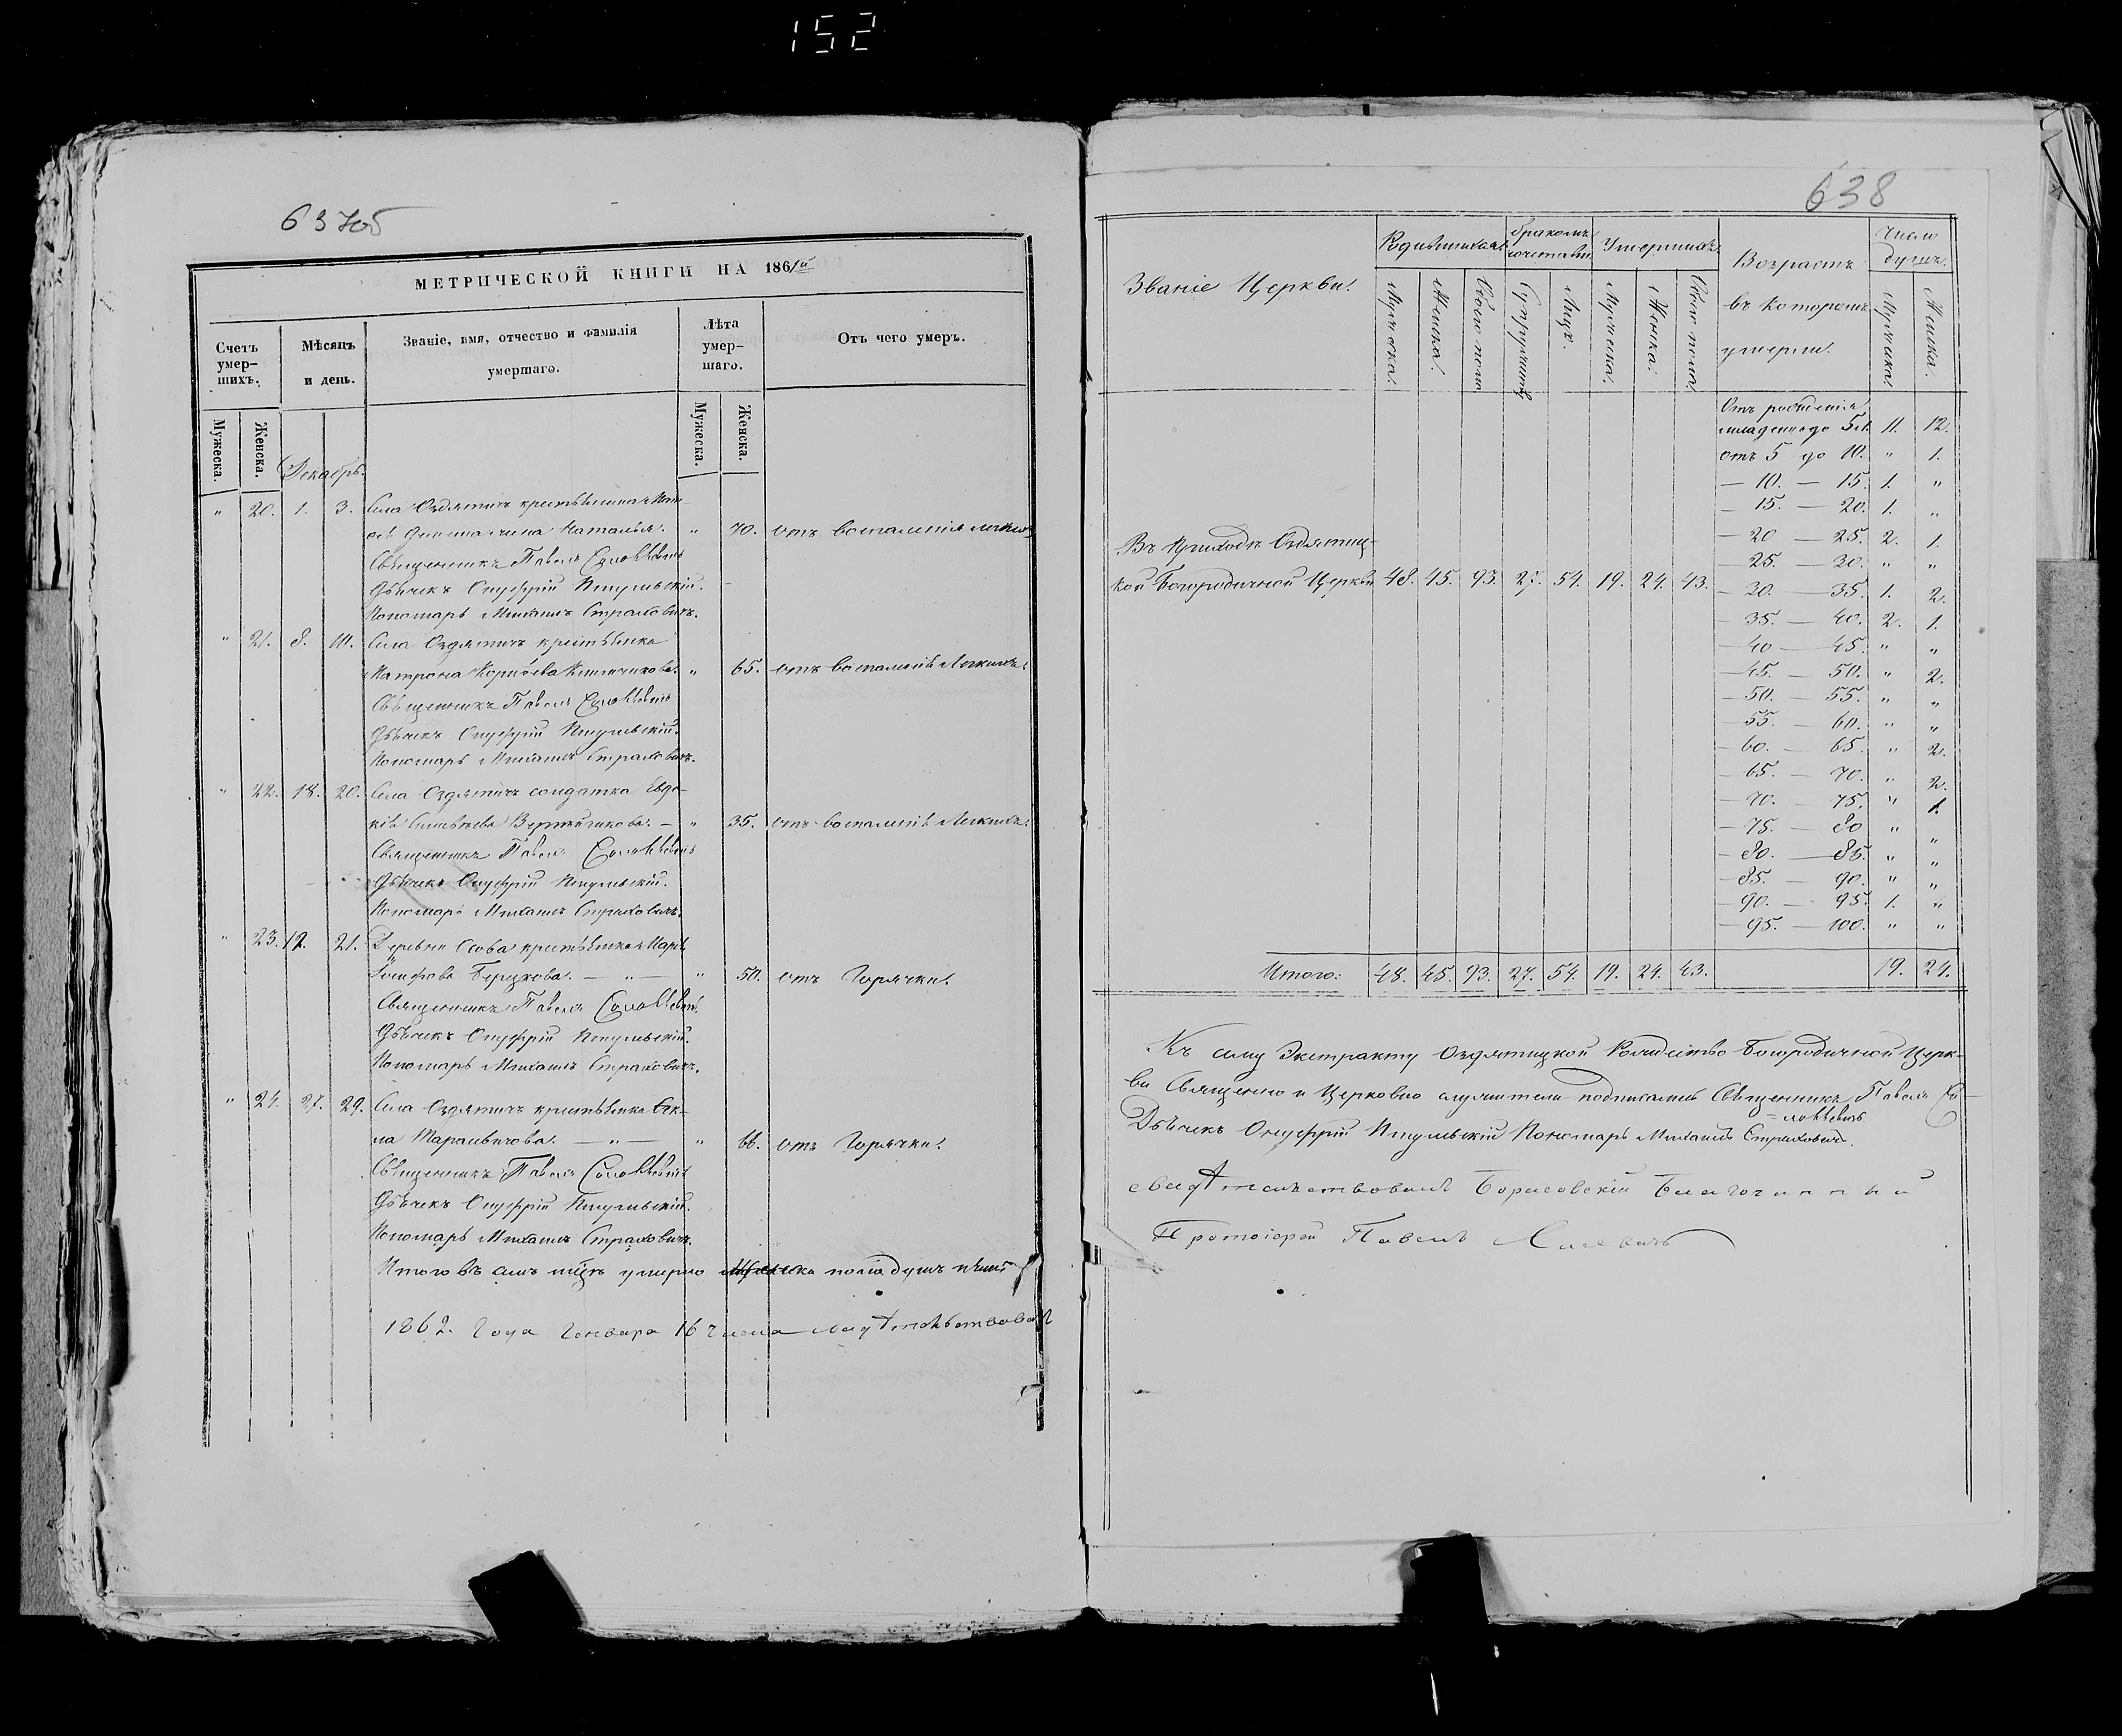 152
637об
МЕТРИЧЕСКОЙ КНИГИ НА 1861й
Счетъ умершихъ.
Мѣсяцъ и день.
Званіе, имя, отчество и фамилія умершаго.
Лѣта умершаго.
Отъ чего умеръ.
Мужеска. Женска. Мужеска. Женска.
Декабрь.
" 20. 1. 3. Села Оздятичъ крестьянка
Наталья. " 70. отъ воспаленія легкихъ
Священникъ Павелъ Соловьевичъ
Дьячекъ Онуфрій Пигулевскій.
Пономарь Михаилъ Страховичъ.
" 21. 8. 10. Села Оздятичъ крестьянка
" 65. отъ воспаленія легкихъ.
Священникъ Павелъ Соловьевичъ
Дьячекъ Онуфрій Пигулевскій.
Пономарь Михаилъ Страховичъ.
" 22. 18. 20. Села Оздятичъ солдатка Евдо-
кія " 35. отъ воспаленія легкихъ.
Священникъ Павелъ Соловьевичъ
Дьячекъ Онуфрій Пигулевскій.
Пономарь Михаилъ Страховичъ.
" 23. 19. 21. Деревни крестьянка
" 50. отъ Горячки.
Священникъ Павелъ Соловьевичъ.
Дьячекъ Онуфрій Пигулевскій.
Пономарь Михаилъ Страховичъ.
" 24. 27. 29. Села Оздятичъ крестьянка Фек-
ла Тарасевичова. — " — " 66. отъ Горячки.
Священникъ Павелъ Соловьевичъ
Дьячекъ Онуфрій Пигулевскій.
Пономарь Михаилъ Страховичъ.
Итого въ семъ мцѣ умерло женска пола душъ пять
1862. Года Генваря 16 числа свидѣтельствовалъ
638
Званіе Церкви.
Родившихся. Бракомъ сочетавш. Умершихъ.
Возрастъ въ которомъ умерли.
Число душъ.
Мужеска. Женска. Обоего пола. Супружествъ Лицъ. Мужеска. Женска. Обоего пола. Мужеска. Женска.
Отъ рожденія
младенч. до 5 л. 11. 12.
отъ 5 до 10. " 1.
— 10. — 15. 1. "
— 15. — 20. 1. "
— 20 — 25. 2. 1.
— 25. — 30. " "
Въ Приходѣ Оздятиц-
кой Богородичной Церкви 48. 45. 93. 27. 54. 19. 24. 43.
— 30. — 35. 1. 2.
— 35. — 40. 2. 1.
— 40 — 45. " "
— 45. — 50. " 2.
— 50. — 55. " "
— 55. — 60. " "
— 60. — 65. " 2.
— 65. — 70. " 2.
— 70. — 75. " 1.
— 75. — 80 " "
— 80. — 85. " "
— 85. — 90. " "
— 90. — 95. 1. "
— 95. — 100. " "
Итого: 48. 45. 93. 27. 54. 19. 24. 43. 19. 24.
Къ сему Экстракту Оздятицкой Рождество Богородичной Церк-
ви Священно и Церковно служители подписались Священникъ Павелъ Со-
=ловьевичъ
Дьячекъ Онуфрій Пигулевскій Пономарь Михаилъ Страховичъ.
свидѣтельствовалъ Борисовскій Благочинный
Протоіерей Павелъ